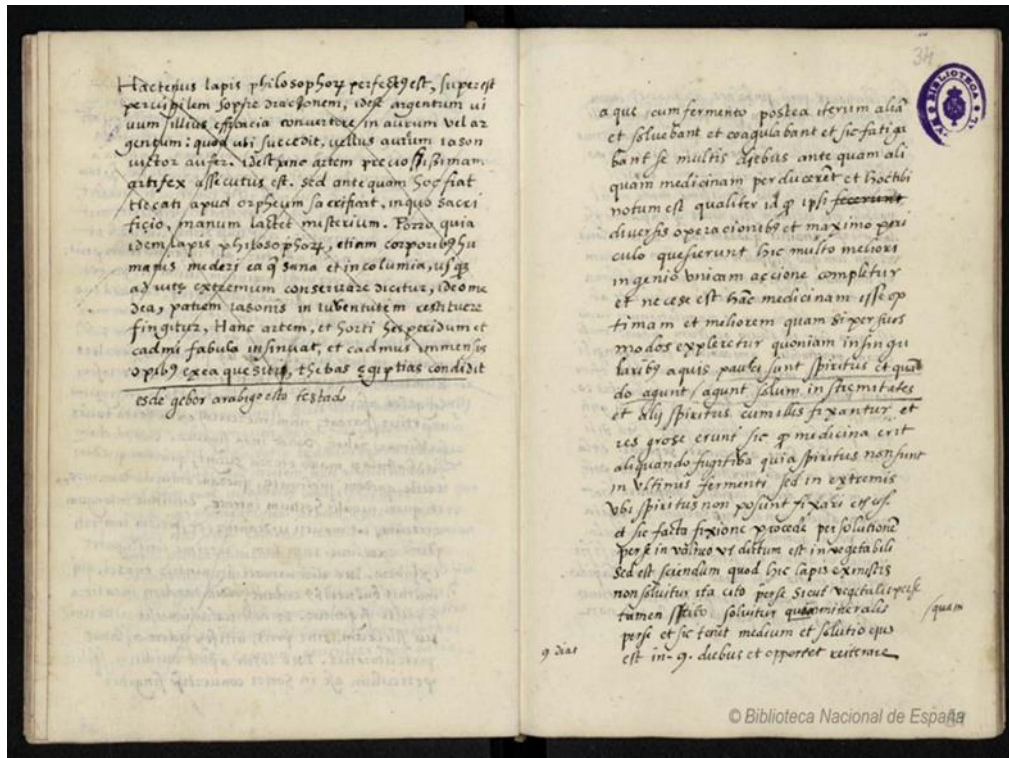 Hactenus lapis philosophorꝝ perfectꝰ est, superest
pervigilem sopire draconem, idest argentum vi
uum illius efficacia convertere in aurum vel ar
gentum: quod ubi succedit, vellus aurum iason
victor aufer. idest hanc artem preciosissimam
artifex assecutus est. sed antequam hoc fiat
Hecati apud orpheum sacrificant, in quo sacri
ficio, manum lactet misterium. Porro quia
idem lapis philosophorꝝ, etiam corporibꝰ hu
manis mederi ea q̃ sana et incolumia, usqꝫ
ad vite extremium conservare dicitur, ideo me
dea, patrem iasonis in iuventutem restituere
fingitur, Hanc artem, et horti hesperidum et
cadmi fabula insinuat, et cadmus immensis
opibꝰ ex ea quesitis, thebas egiptias condidit
es de geber arabigo esto testado
34
BIBLIOTECA
aque cum fermento postea iterum aliã
et solvebant et coagulabant et sic fatiga
bant se multis diebus ante quam ali
quam medicinam perducerẽt et hoc tibi
notum est qualiter id q̃ ipsi fecerunt
diversis operacionibꝰ et maximo peri
culo quesierunt hic multo meliori
ingenio unicam accione completur
et necese est hãc medicinam esse op
timam et meliorem quam si per suos
modos expleretur quoniam in singu
laribꝰ aquis pauci sunt spiritus et quã
do agunt / agunt solum in stremitates
et alij spiritus cum illis fixantur et
res grose erunt sic q̃ medicina erit
aliquando fugitiba quia spiritus non sunt
in ultimis fermenti sed in extremis
ubi spiritus non posunt fixari
et sic facta fixione procede per solutionẽ
per se in valneo ut dictum est in vegetabili
sed est sciendum quod hic lapis ex mistis
non solvitur ita cito per se sicut vegetalis per se
tamen solvitur mineralis /quam
per se et sic tenet medium et solutio ejus
9 dias est in - 9. diebus et opportet reiterare
© Biblioteca Nacional de España